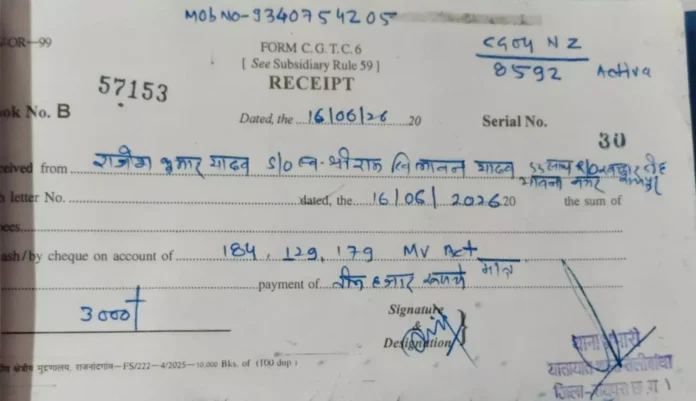 Mob No-9340754205
FOR-99
FORM C.G.T.C.6
[ See Subsidiary Rule 59 ]
RECEIPT
CG04 NZ
8592 Activa
57153
ok No. B
Dated, the 16/06/26 20
Serial No.
30
ceived from राजेश कुमार यादव S/O स्व. श्रीराम यादव
letter No. dated, the 16/06/2026 20 the sum of
pees
ash/by cheque on account of 184, 129, 179 MV Act
payment of तीन हजार रूपये मात्र
3000
Signature
&
Designation
क्षेत्रीय मुद्रणालय, राजनांदगांव—FS/222—4/2025—10,000 Bks. of (100 dup )
थाना प्रभारी
यातायात थाना तेलीबांधा
जिला-रायपुर (छ.ग.)